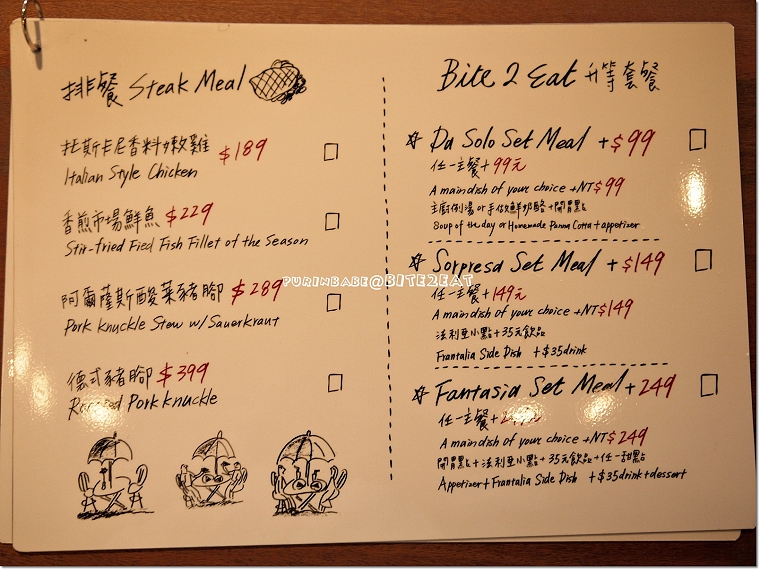 排餐 Steak Meal
托斯卡尼香料嫩雞 $189
Italian Style Chicken
香煎市場鮮魚 $229
Stir-fried Fied Fish Fillet of the Season
阿爾薩斯酸菜豬腳 $289
Pork Knuckle Stew w/ Sauerkraut
德式豬腳 $399
Roasted Pork knuckle
Bite 2 Eat 升等套餐
Da Solo Set Meal +$99
任一主餐+99元
A main dish of your choice +NT$99
主廚例湯 or 手做鮮奶酪+開胃點
Soup of the day or Homemade Panna Cotta + appetizer
Sorpresa Set Meal +$149
任一主餐+149元
A main dish of your choice +NT$149
法利亞小點+35元飲品
Frantalia Side Dish +$35drink
Fantasia Set Meal +249
任一主餐+249元
A main dish of your choice +NT$249
開胃點+法利亞小點+35元飲品+任一甜點
Appetizer+Frantalia Side Dish +$35drink+dessert
PURINBABE@BITE2EAT